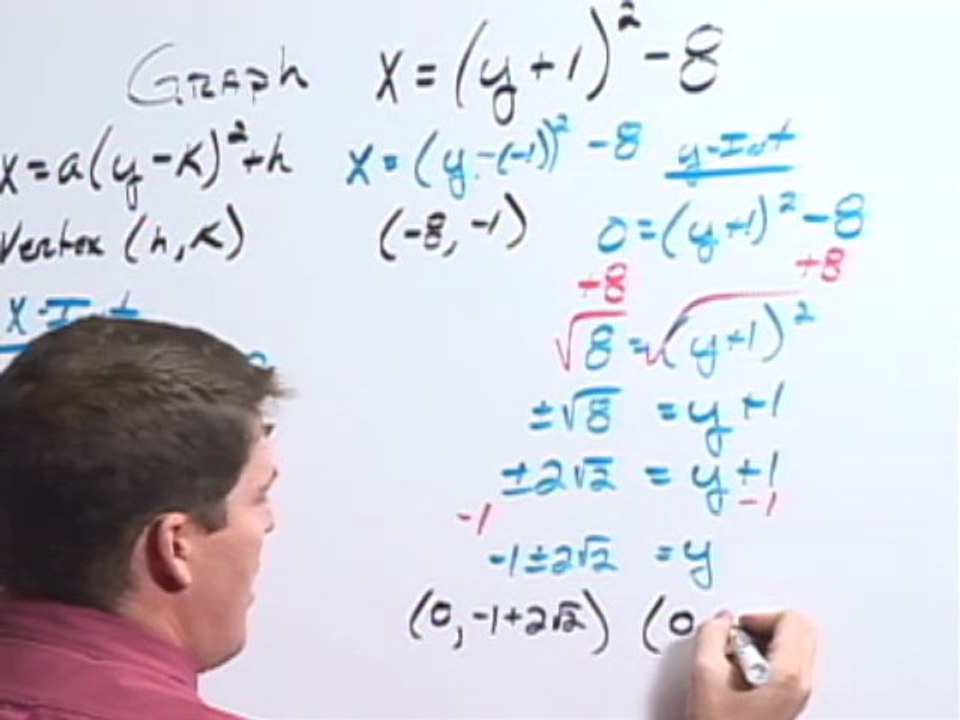 GRAPH x = (y+1)² - 8
x = a(y-k)² + h
x = (y-(-1))² - 8
y-Int
Vertex (h,k)
(-8,-1)
0 = (y+1)² - 8
+8 +8
x-Int
√8 = √(y+1)²
±√8 = y+1
±2√2 = y+1
-1 -1
-1±2√2 = y
(0,-1+2√2) (0